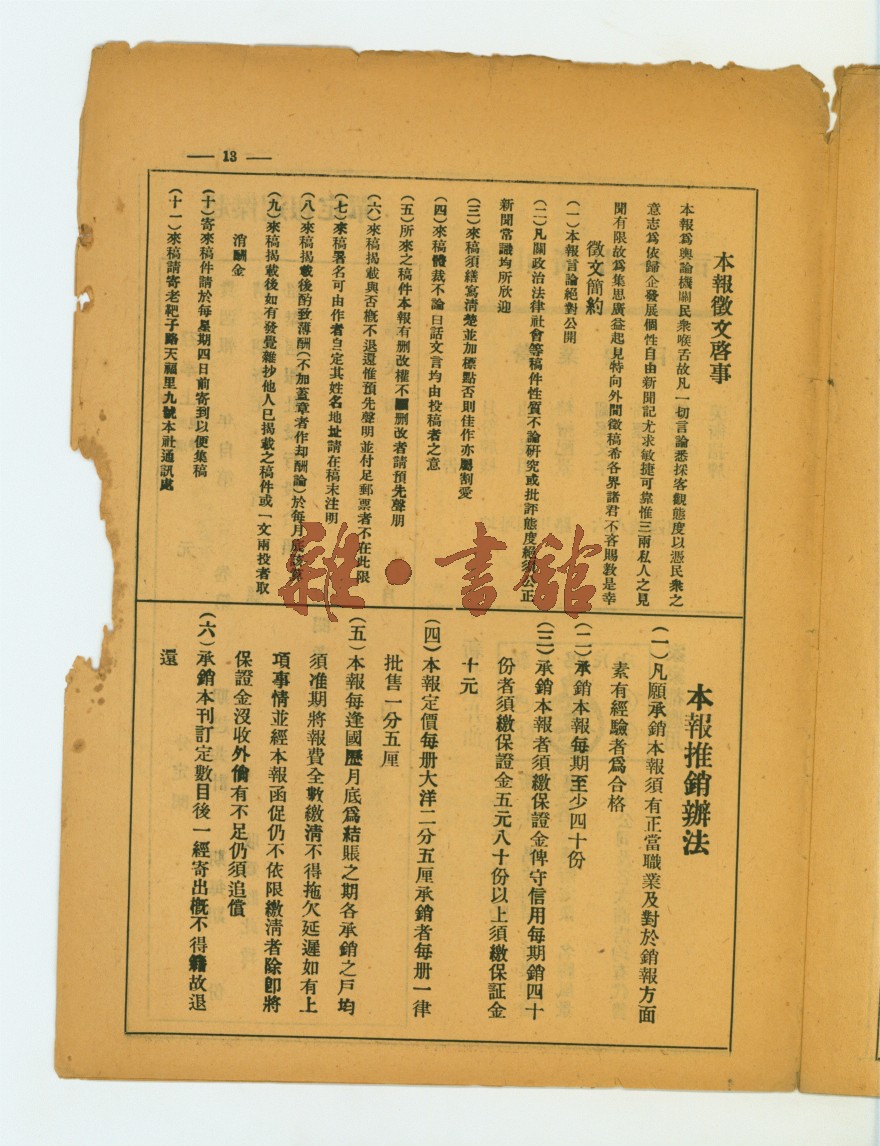 — 13 —
本報徵文啓事
本報爲輿論機關民衆喉舌故凡一切言論悉採客觀態度以憑民衆之
意志爲依歸企發展個性自由新聞記尤求敏捷可靠惟三兩私人之見
聞有限故爲集思廣益起見特向外間徵稿希各界諸君不吝賜敎是幸
徵文簡約
(一)本報言論絕對公開
(二)凡關政治法律社會等稿件性質不論硏究或批評態度絕須公正
新聞常識均所欣迎
(三)來稿須繕寫淸楚並加標點否則佳作亦屬割愛
(四)來稿體裁不論白話文言均由投稿者之意
(五)所來之稿件本報有删改權不願删改者請預先聲朋
(六)來稿揭載與否槪不退還惟預先聲明並付足郵票者不在此限
(七)來稿署名可由作者自定其姓名地址請在稿末注明
(八)來稿揭載後酌致薄酬(不加蓋章者作却酬論)於每月底核算
(九)來稿揭載後如有發覺雜抄他人已揭載之稿件或一文兩投者取
消酬金
(十)寄來稿件請於每星期四日前寄到以便集稿
(十一)來稿請寄老靶子路天福里九號本社通訊處
本報推銷辦法
(一)凡願承銷本報須有正當職業及對於銷報方面
素有經驗者爲合格
(二)承銷本報每期至少四十份
(三)承銷本報者須繳保證金俾守信用每期銷四十
份者須繳保證金五元八十份以上須繳保証金
十元
(四)本報定價每册大洋二分五厘承銷者每册一律
批售一分五厘
(五)本報每逢國歷月底爲結賬之期各承銷之戶均
須准期將報費全數繳淸不得拖欠延遲如有上
項事情並經本報函促仍不依限繳淸者除卽將
保證金沒收外倘有不足仍須追償
(六)承銷本刊訂定數目後一經寄出槪不得籍故退
還
雜·書館